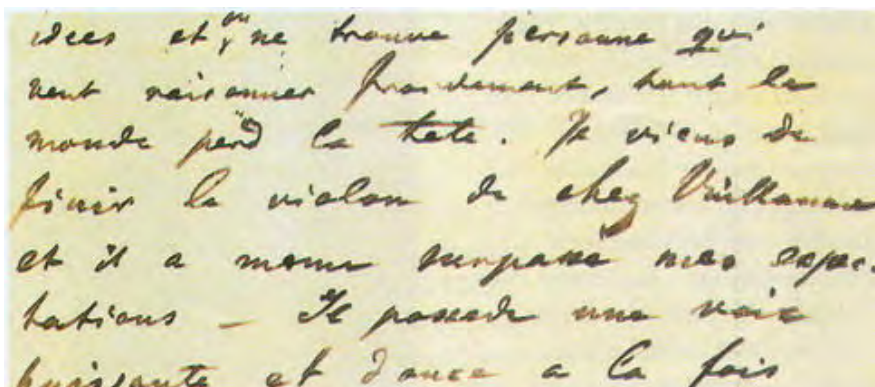 idees et on y ne trouve personne qui
veut raisonner froidement, tout le
monde perd la tete. Je viens de
finir le violon de chez Vuillaume
et il a meme surpassé mes expec-
tations — Il possede une voix
puissante et douce a la fois